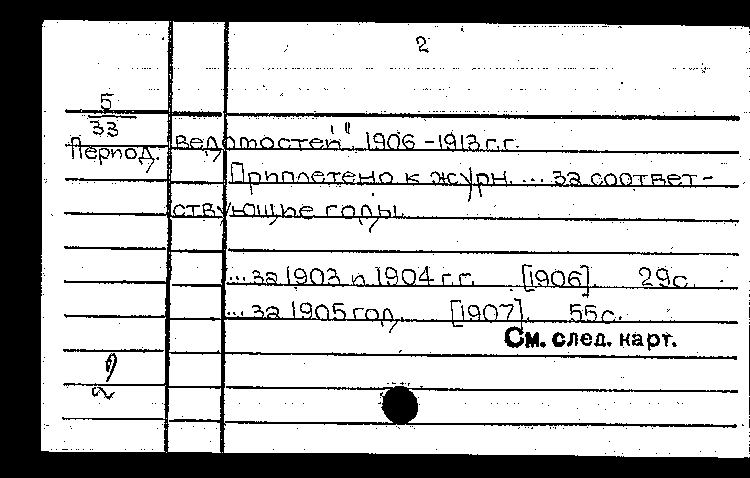 2
5
33
Период.
ведомостей" 1906-1913 г.г.
Приплетено к журн. ... за соответ-
ствующие годы.
...за 1903 и 1904 г.г. [1906]. 29с.
...за 1905 год. [1907]. 55с.
См. след. карт.